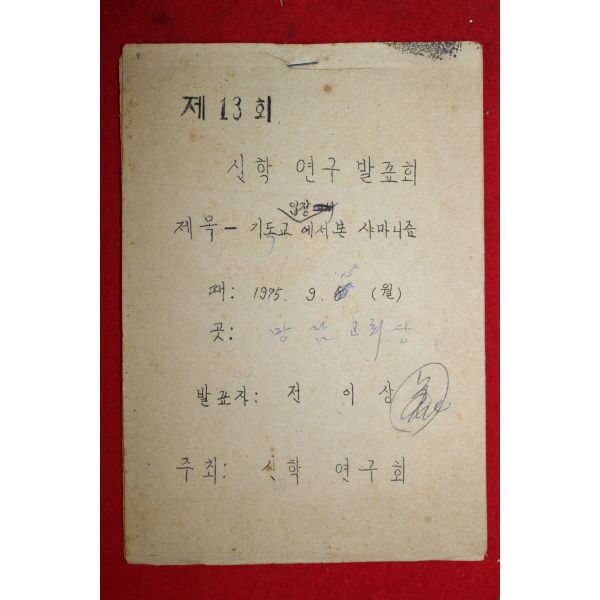 제 13 회
신학 연구 발표회
입장
제목 - 기독교 에서 본 샤마니즘
15
때: 1975. 9. (월)
곳: 교회당
발표자: 전 이 상
주최: 신학 연구회